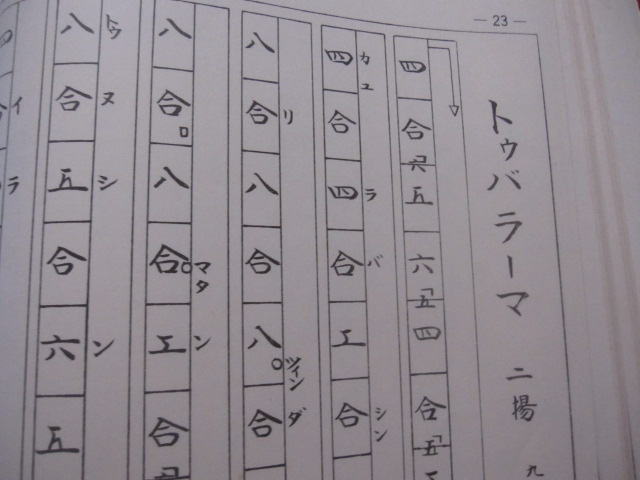 — 23 —
トゥバラーマ 二揚 九
四合六五六五四合五工
四合四合工合
カユラバシン
八合八合八合
リツィンダ
八合八合工合
マタン
八合五合六五
トゥヌシン
四
イラ